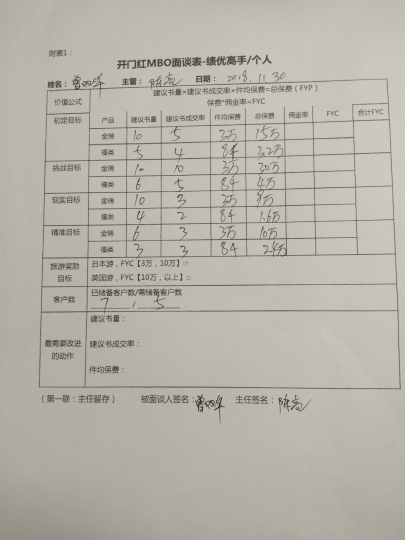 附表1：
开门红MBO面谈表-绩优高手/个人
姓名： 主管：陈亮 日期：2018.11.30
价值公式 建议书量×建议书成交率×件均保费=总保费（FYP）
保费*佣金率=FYC
初定目标 产品 建议书量 建议书成交率 件均保费 总保费 佣金率 FYC 合计FYC
金瑞 10 5 3万 15万
福类 5 4 8千 3.2万
挑战目标 金瑞 10 10 3万 30万
福类 6 5 8千 4万
现实目标 金瑞 10 3 3万 9万
福类 4 2 8千 1.6万
精准目标 金瑞 6 3 3万 10万
福类 3 3 8千 2.4万
旅游奖励目标 日本游，FYC【3万，10万】□
英国游，FYC【10万，以上】□
客户数 已储备客户数/需储备客户数
7 / 5
最需要改进的动作 建议书量：
建议书成交率：
件均保费：
（第一联：主任留存） 被面谈人签名： 主任签名：陈亮